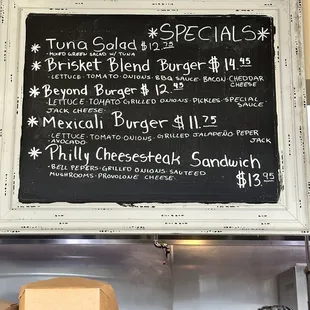 *SPECIALS*
* Tuna Salad $12.75
-MIXED GREEN SALAD W/ TUNA
* Brisket Blend Burger $14.95
-LETTUCE-TOMATO-ONIONS-BBQ SAUCE-BACON-CHEDDAR
CHEESE
* Beyond Burger $12.95
-LETTUCE-TOMATO-GRILLED ONIONS-PICKLES-SPECIAL
JACK CHEESE SAUCE
* Mexicali Burger $11.75
-LETTUCE-TOMATO-ONIONS-GRILLED JALAPEÑO PEPER
-AVOCADO- JACK
* Philly Cheesesteak Sandwich
-BELL PEPERS-GRILLED ONIONS-SAUTEED
MUSHROOMS-PROVOLONE CHEESE- $13.95